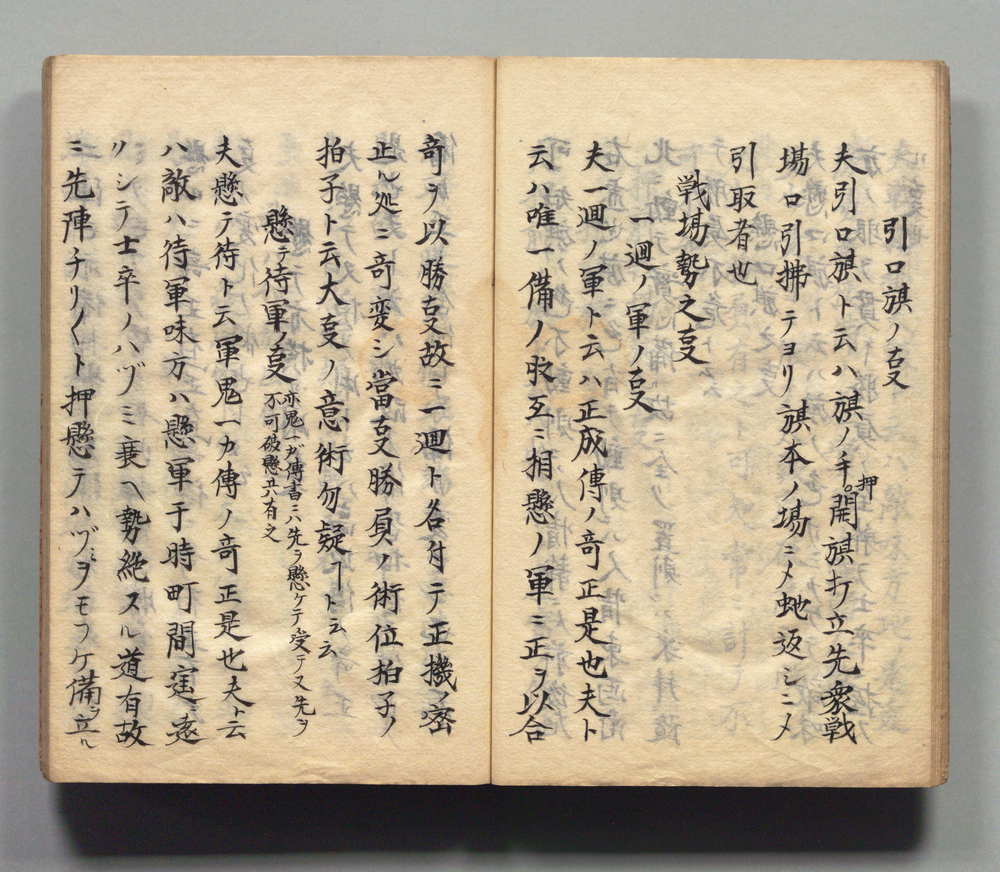 引口旗ノ㕝
夫引口旗ト云ハ旗ノ手押開旗打立先衆戦
場口引拂テヨリ旗本ノ場ニメ虵返シニメ
引取者也
戦場勢之㕝
一廻ノ軍ノ㕝
夫一廻ノ軍ト云ハ正成傳ノ奇正是也夫ト
云ハ唯一備ノ吸互ニ相懸ノ軍ニ正ヲ以合
奇ヲ以勝㕝故ニ一廻ト名付テ正機ノ密
止ル処ニ奇変シ當㕝勝負ノ術位拍子ノ
拍子ト云大㕝ノ意術勿疑ヿト云云
懸テ待軍ノ㕝
亦鬼一ガ傳書ニハ先ヲ懸ケテ受テ又先ヲ
不可破懸共有之
夫懸テ待ト云軍鬼一カ傳ノ奇正是也夫ト云
ハ敵ハ待軍味方ハ懸軍于時町間遠
ノシテ士卒ノハヅミ衰ヘ勢絶スル道有故
ニ先陣チリ〱ト押懸テハヅミヲモウケ備ヲ立ル